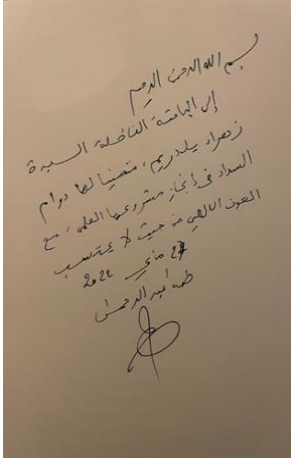 بسم الله الرحمن الرحيم
إلى الباحثة الفاضلة السيدة
زهراء يلدريم، متمنيا لها دوام
السداد في إنجاز مشروعها العلمي، مع
العون الإلهي من حيث لا يحتسب
27 ماي 2022
طه عبد الرحمن